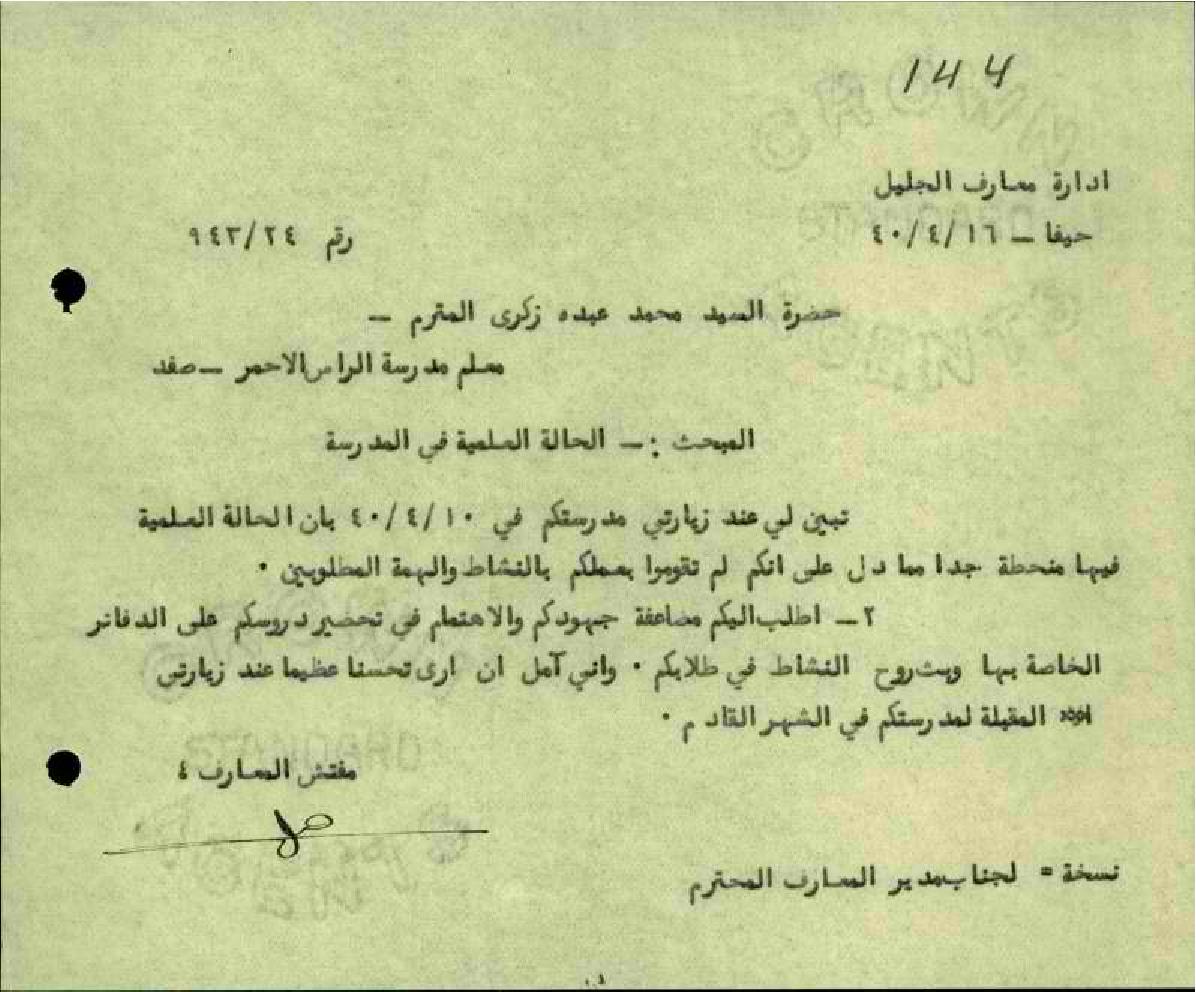 144
ادارة معارف الجليل
حيفا – ٤٠/٤/١٦
رقم ٩٤٣/٢٤
حضرة السيد محمد عبده زكرى المترم –
معلم مدرسة الراس الاحمر – صفد
المبحث :– الحالة العلمية في المدرسة
تبين لي عند زيارتي مدرستكم في ٤٠/٤/١٠ بان الحالة العلمية
فيها منحطة جدا مما دل على انكم لم تقوموا بعملكم بالنشاط والهمة المطلوبين ٠
٢– اطلب اليكم مضاعفة جهودكم والاهتمام في تحضير دروسكم على الدفاتر
الخاصة بها وبث روح النشاط في طلابكم ٠ واني آمل ان ارى تحسنا عظيما عند زيارتي
المقبلة لمدرستكم في الشهر القادم ٠
مفتش المعارف ؛
نسخة = لجناب مدير المعارف المحترم